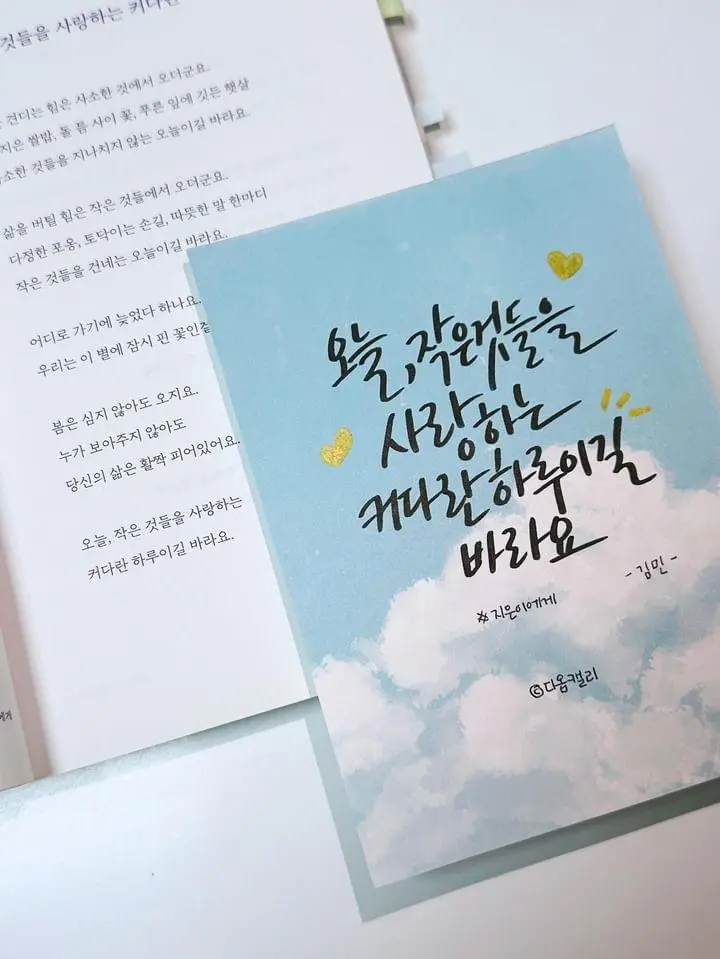 것들을 사랑하는 커다란
견디는 힘은 사소한 것에서 오더군요.
지은 쌀밥, 돌 틈 사이 꽃, 푸른 잎에 깃든 햇살
사소한 것들을 지나치지 않는 오늘이길 바라요.
삶을 버틸 힘은 작은 것들에서 오더군요.
다정한 포옹, 토닥이는 손길, 따뜻한 말 한마디
작은 것들을 건네는 오늘이길 바라요.
어디로 가기에 늦었다 하나요.
우리는 이 별에 잠시 핀 꽃인걸
봄은 심지 않아도 오지요.
누가 보아주지 않아도
당신의 삶은 활짝 피어있어요.
오늘, 작은 것들을 사랑하는
커다란 하루이길 바라요.
에게
오늘, 작은것들을
사랑하는
커다란 하루이길
바라요
- 김민 -
※ 지은이에게
©다옴캘리